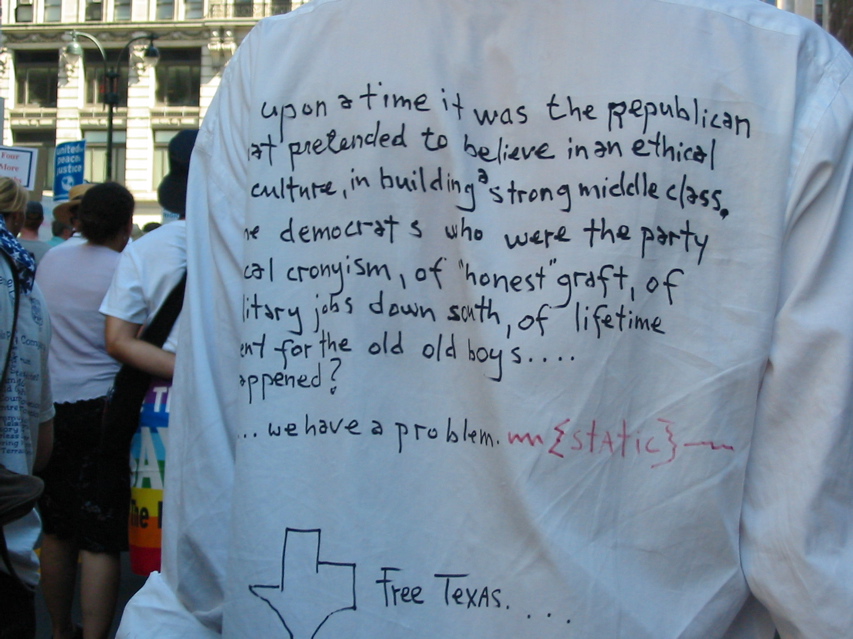 upon a time it was the republican
at pretended to believe in an ethical
culture, in building a strong middle class,
e democrats who were the party
cal cronyism, of "honest" graft, of
litary jobs down south, of lifetime
ent for the old old boys....
appened?
... we have a problem. {static}
Free Texas. . . .
united
peace
justice
Four
More